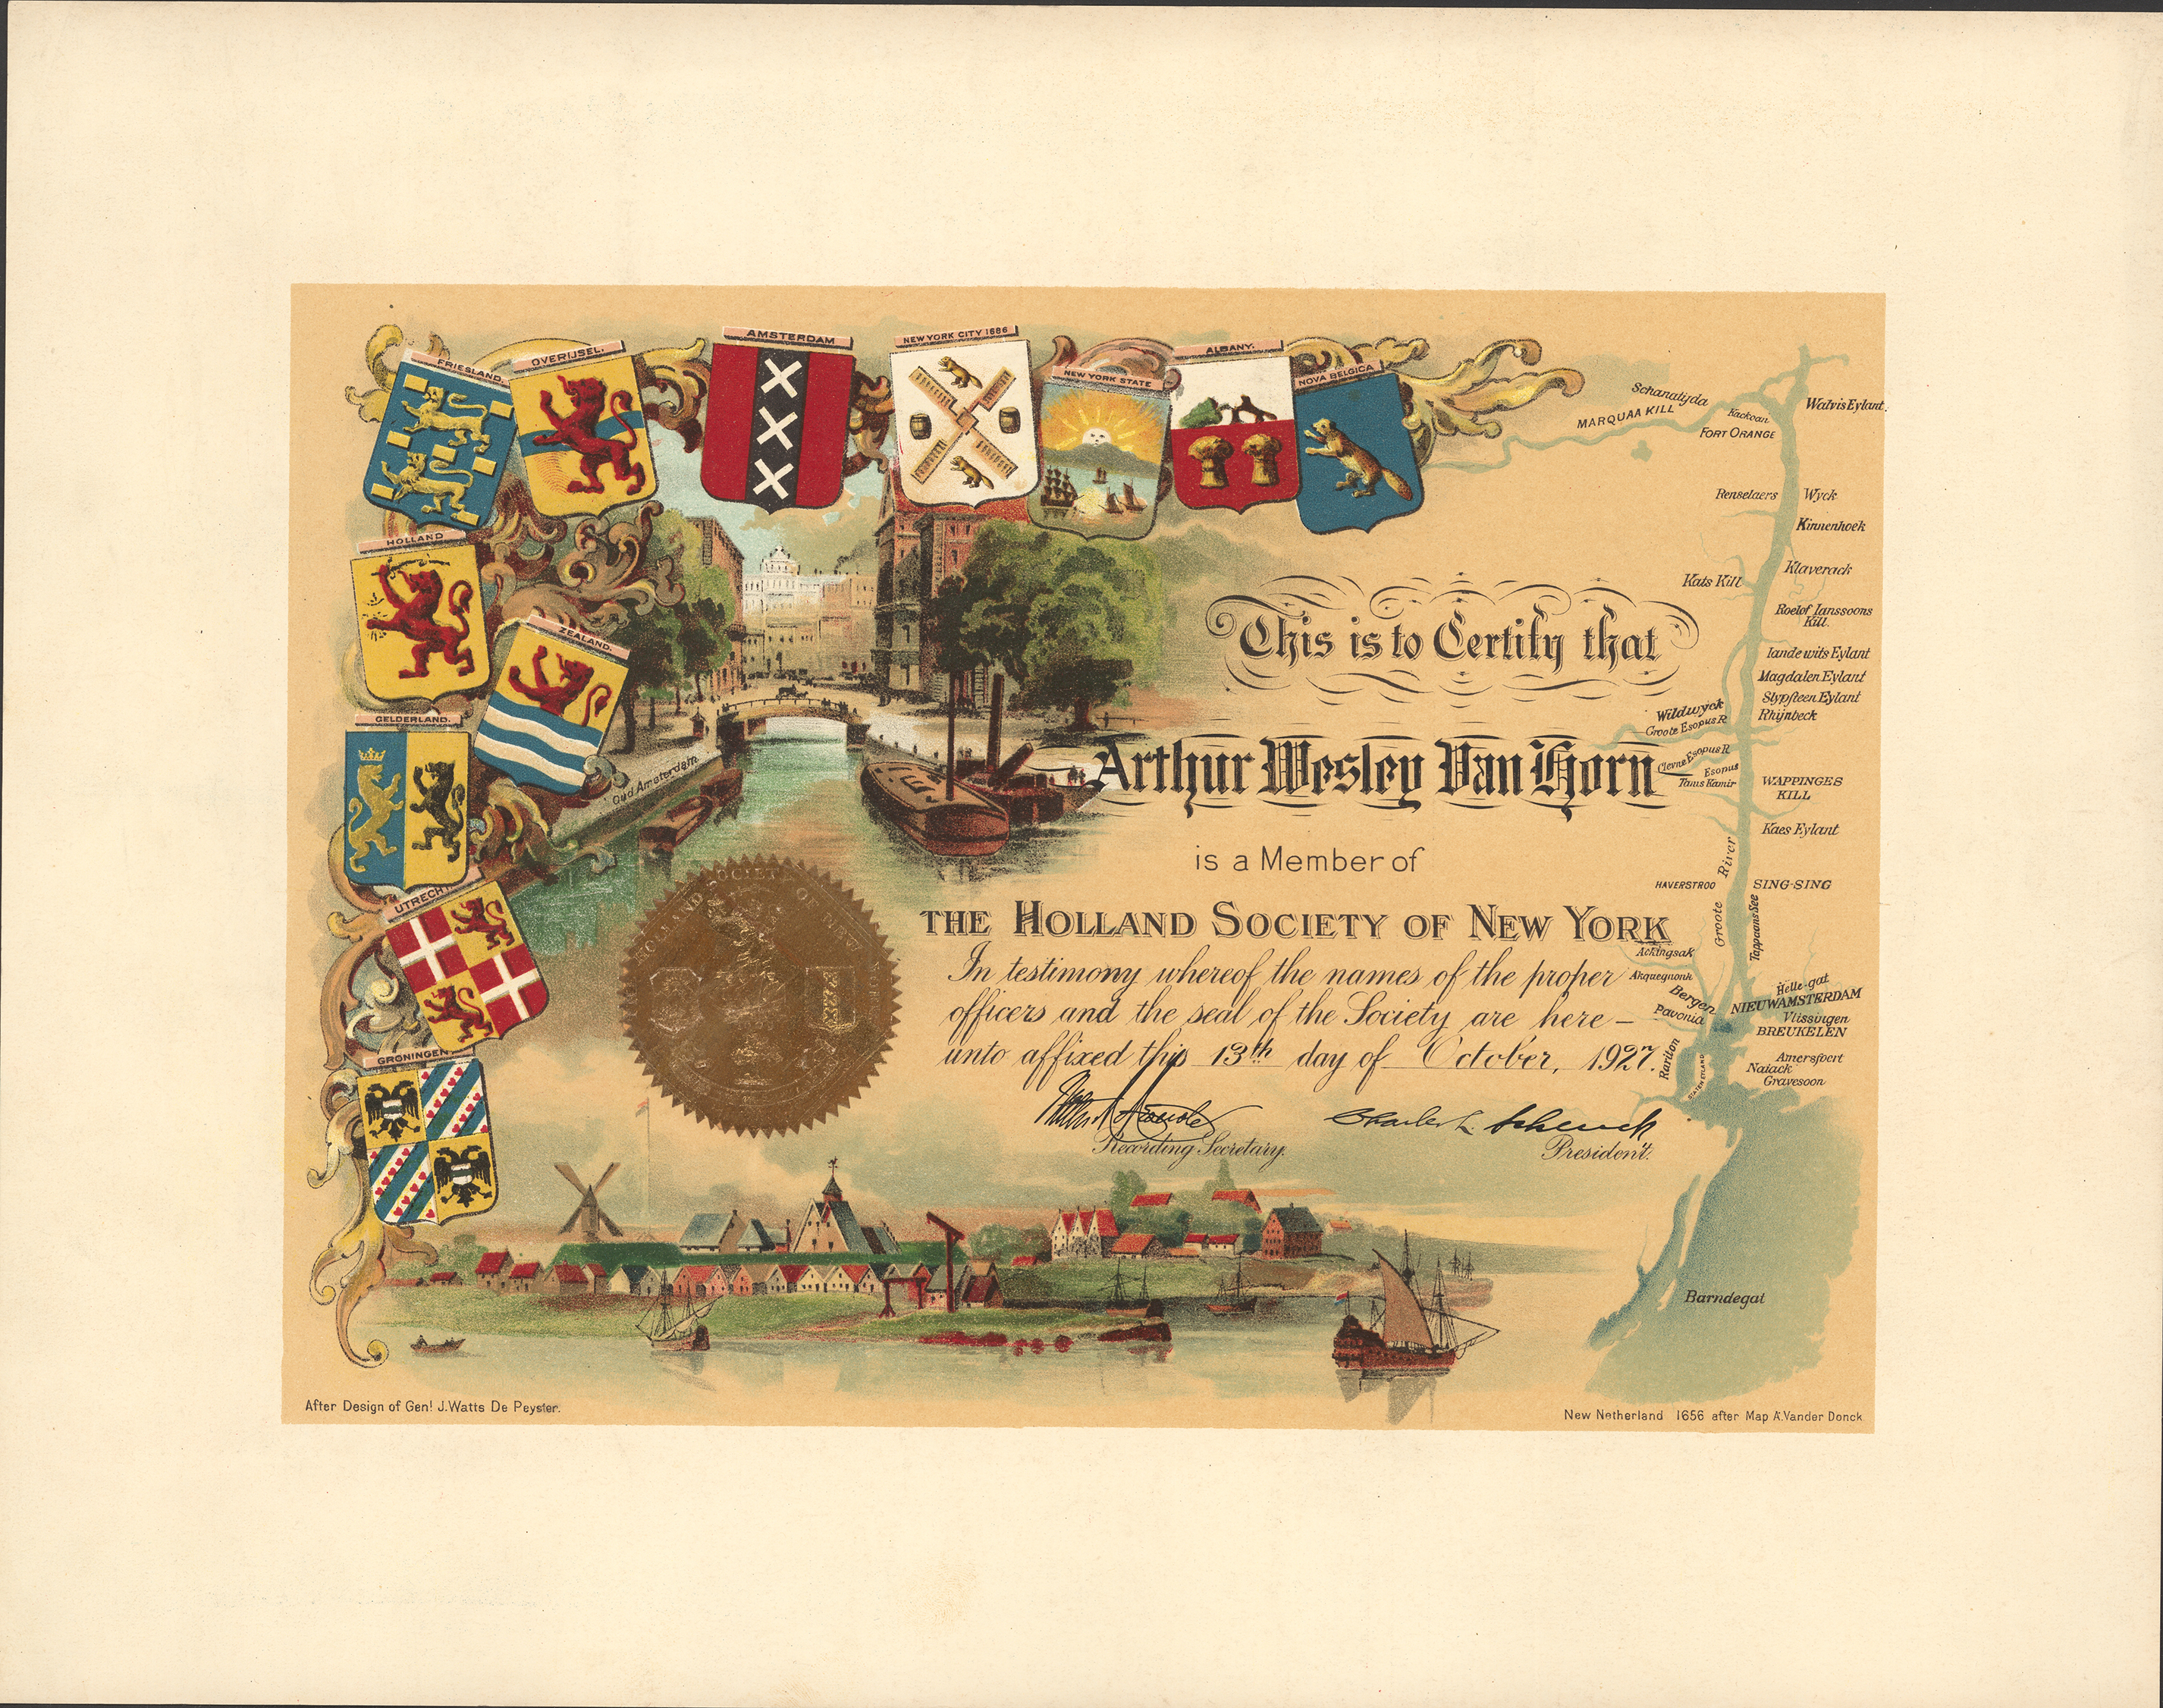 FRIESLAND.
OVERIJSEL.
AMSTERDAM
NEW YORK CITY 1686
NEW YORK STATE
ALBANY.
NOVA BELGICA
HOLLAND
ZEALAND.
GELDERLAND.
UTRECHT
GRONINGEN
Oud Amsterdam
This is to Certify that
Arthur Wesley Van Horn
is a Member of
THE HOLLAND SOCIETY OF NEW YORK
In testimony whereof the names of the proper
officers and the seal of the Society are here-
unto affixed this 13th day of October, 1927.
Recording Secretary.
Charles L. Schenck
President.
HOLLAND SOCIETY OF NEW YORK
Schanatijda
MARQUAA KILL
Kackoan
FORT ORANGE
Walvis Eylant.
Renselaers Wyck
Kinnenhoek
Klaverack
Kats Kill
Roelof Ianssoons
Kill.
Iande wits Eylant
Magdalen Eylant
Slypsteen Eylant
Rhijnbeck
Wildwyck
Groote Esopus R
Clevne Esopus R
Esopus
Tams Kamir
WAPPINGES
KILL
Kaes Eylant
Groote River
HAVERSTROO
SING-SING
Tappaans See
Ackingsak
Akquegnonk
Bergen
Pavonia
Helle-gat
NIEUWAMSTERDAM
Vlissingen
BREUKELEN
Amersfoert
Naiack
Gravesoon
Rariton
STATEN EYLAND
Barndegat
After Design of Genl J. Watts De Peyster.
New Netherland 1656 after Map A. Vander Donck